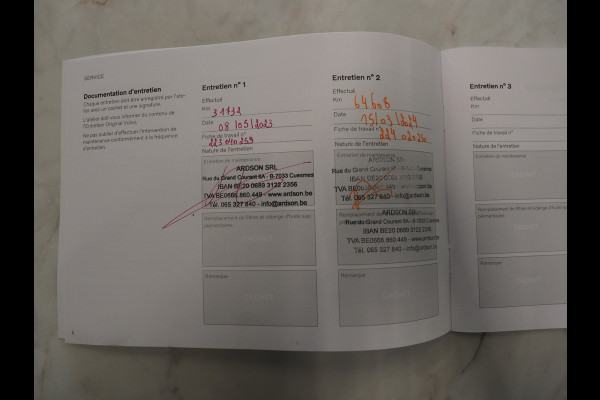 SERVICE
Documentation d'entretien
Chaque entretien doit être enregistré par l'ate-
lier avec un cachet et une signature.
L'atelier doit vous informer du contenu de
l'Entretien Original Volvo.
Ne pas oublier d'effectuer l'intervention de
maintenance conformément à la fréquence
d'entretien.
Entretien n° 1
Effectué
Km 31132
Date 08/05/2023
Fiche de travail n°
223 040 259
Nature de l'entretien
Entretien de maintenance
ARDSON SRL
Rue du Grand Courant 6A - B-7033 Cuesmes
IBAN BE20 0689 3122 2356
TVA BE0666.860.449 - www.ardson.be
Tél. 065 327 840 - info@ardson.be
Remplacement de filtres et vidange d'huile sup-
plémentaires
Remarque
Entretien n° 2
Effectué
Km 64608
Date 15/03/2024
Fiche de travail n°
Nature de l'entretien
Entretien de maintenance
ARDSON SRL
Rue du Grand Courant 6A - B-7033 Cuesmes
IBAN BE20 0689 3122 2356
TVA BE0666.860.449 - www.ardson.be
Tél. 065 327 840 - info@ardson.be
Remplacement
plémentaires
ARDSON SRL
Rue du Grand Courant 6A - B-7033 Cuesmes
IBAN BE20 0689 3122 2356
TVA BE0666.860.449 - www.ardson.be
Tél. 065 327 840 - info@ardson.be
Remarque
Entretien n° 3
Effectué
Km
Date
Fiche de travail n°
Nature de l'entretien
Entretien de maintenance
Remplacement de filtres et vidange d'huile sup-
plémentaires
Remarque